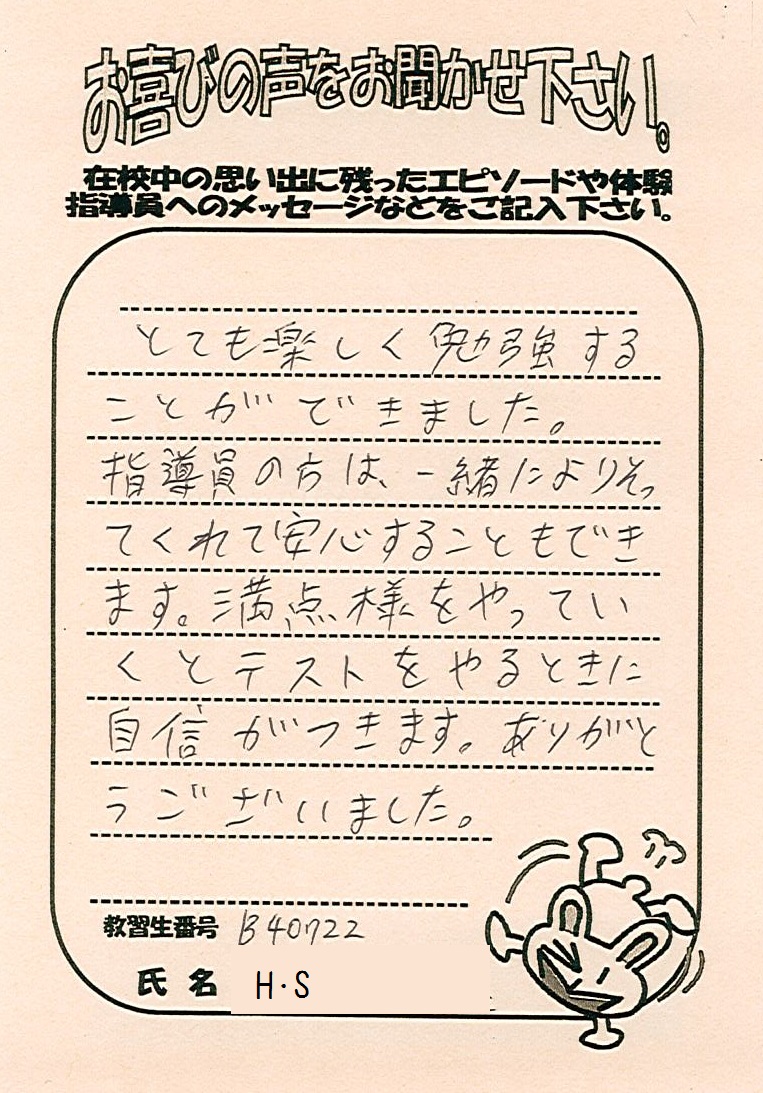 お喜びの声をお聞かせ下さい。
在校中の思い出に残ったエピソードや体験
指導員へのメッセージなどをご記入下さい。
とても楽しく勉強する
ことができました。
指導員の方は、一緒によりそっ
てくれて安心することもでき
ます。満点様をやってい
くとテストをやるときに
自信がつきます。ありがと
うございました。
教習生番号 B40722
氏名 H・S